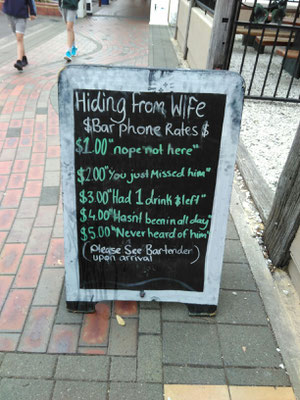 Hiding from Wife
$Bar phone Rates $
$1.00 "nope not here"
$2.00 "You just Missed him"
$3.00 "Had 1 drink & left"
$4.00 "Hasnt been in all day"
$5.00 "Never heard of him"
(Please See Bartender)
upon arrival